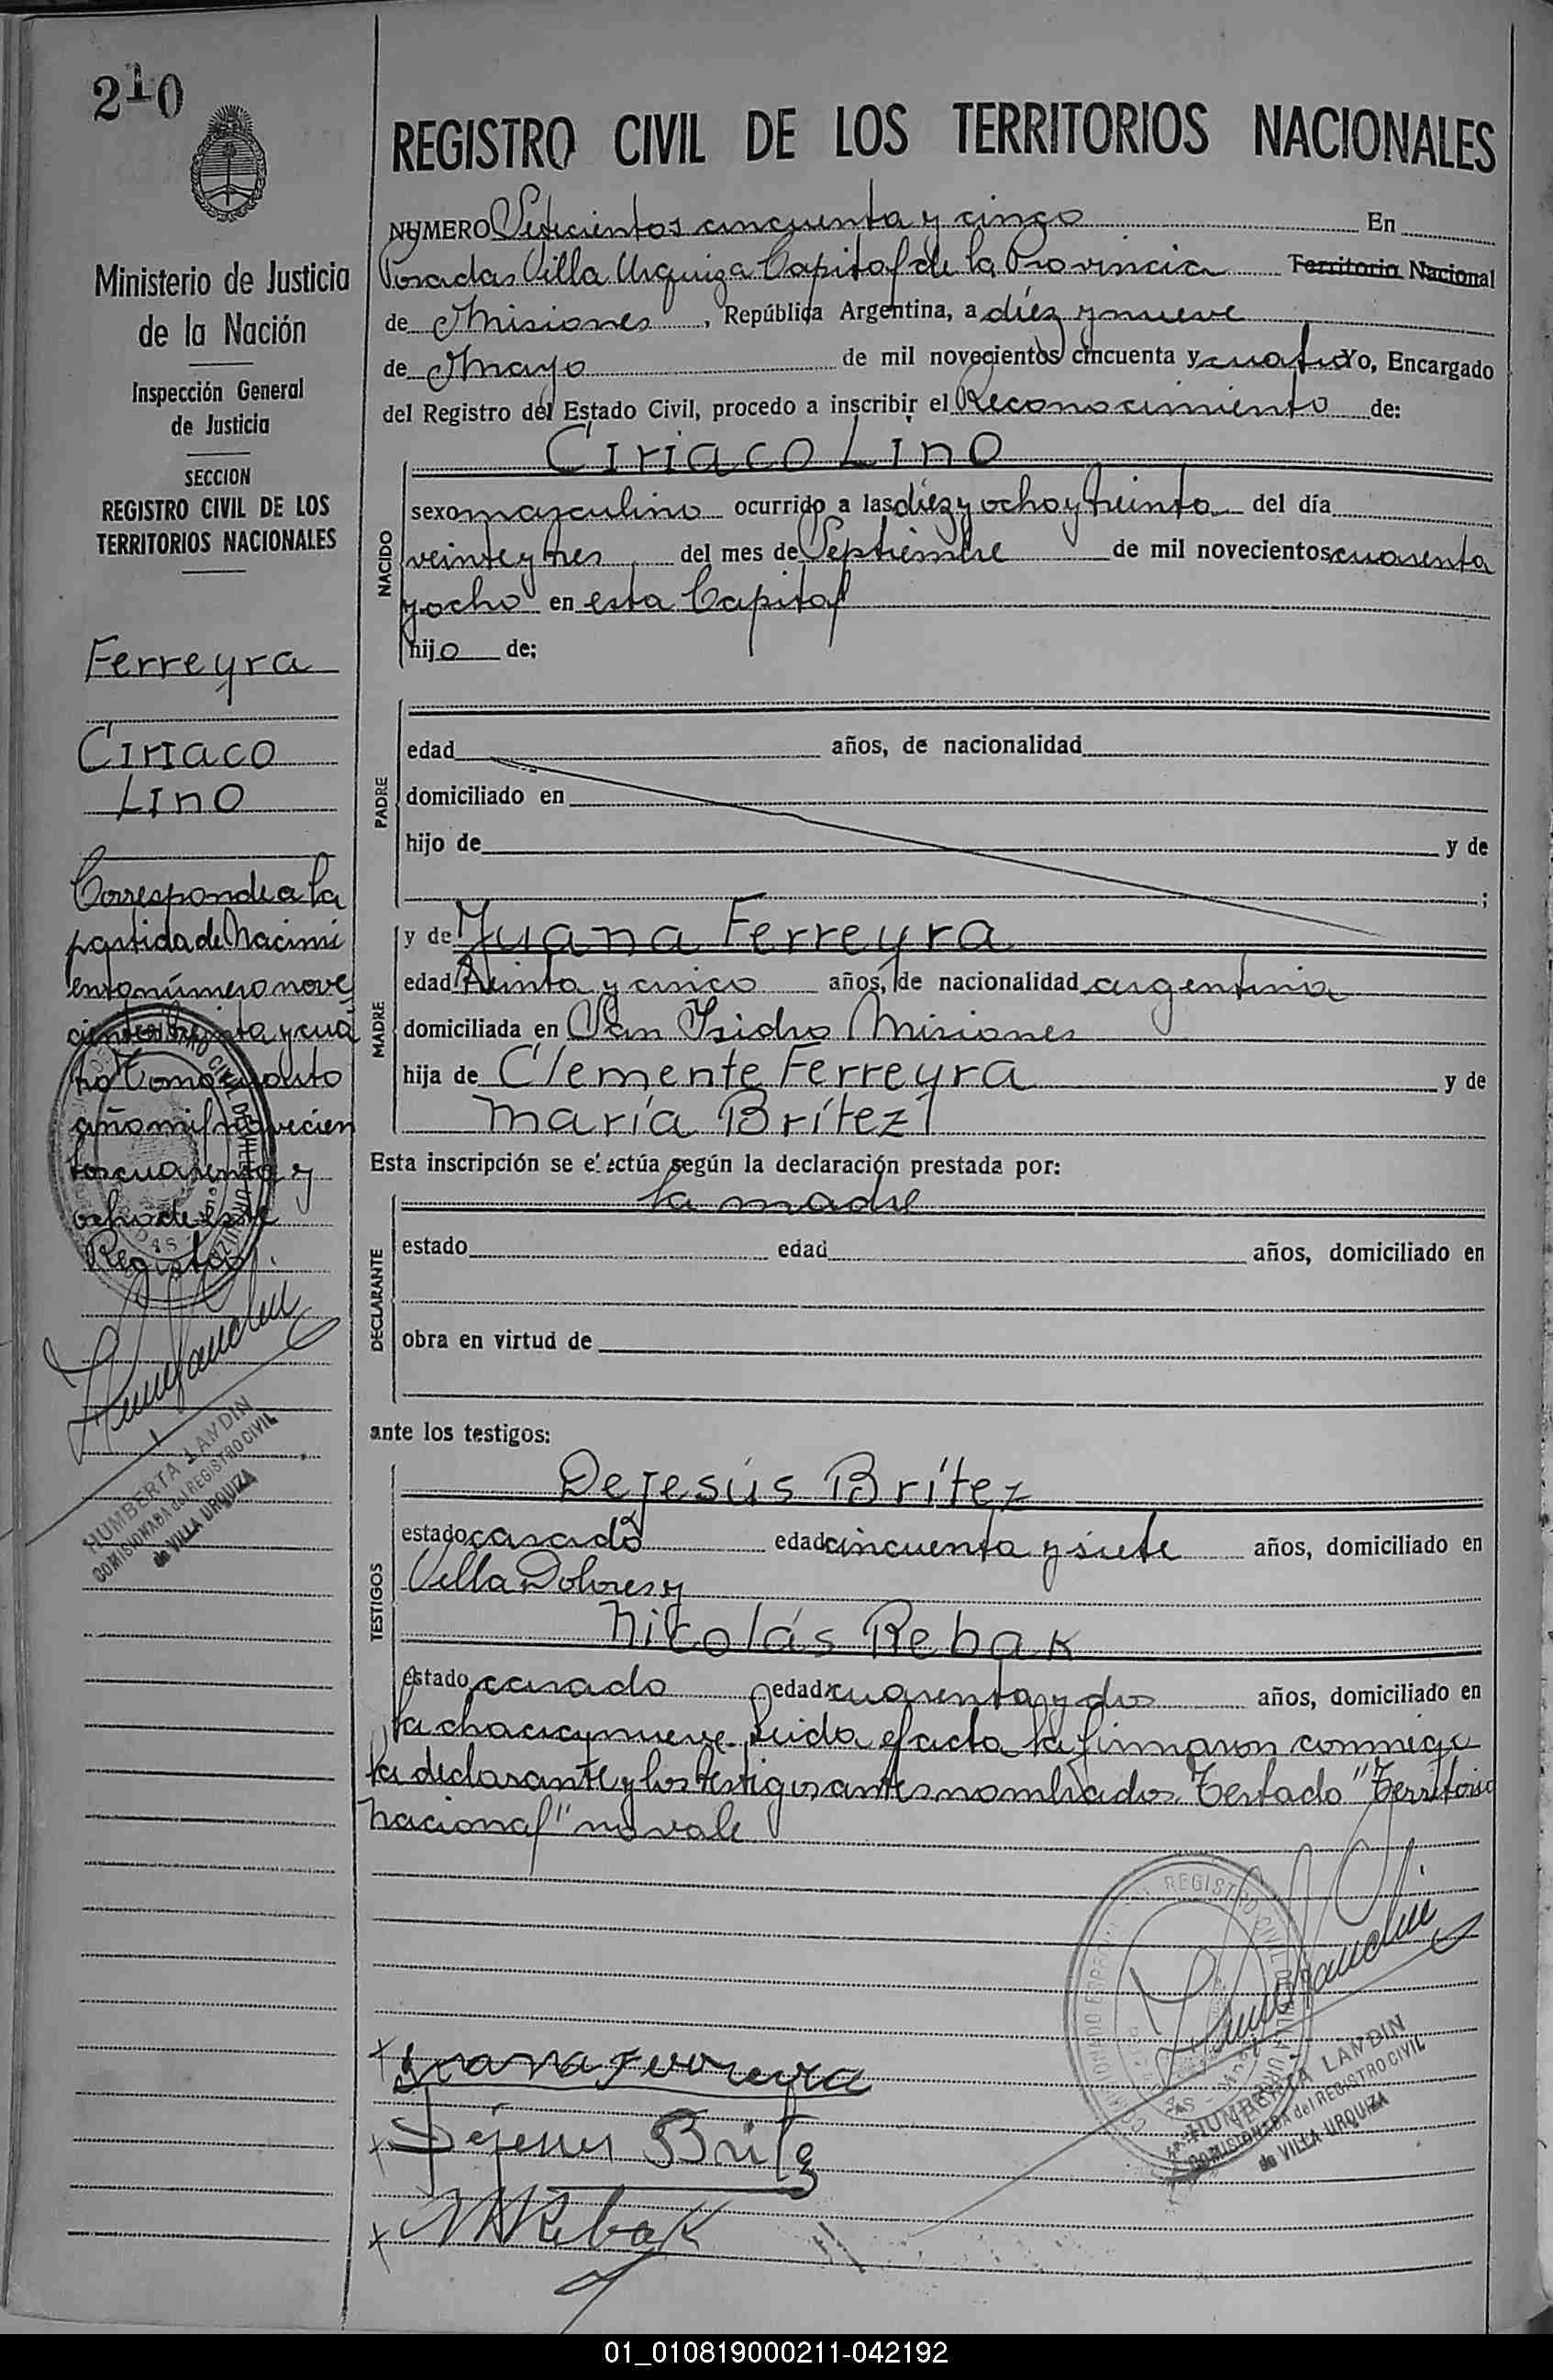 210
REGISTRO CIVIL DE LOS TERRITORIOS NACIONALES
Ministerio de Justicia
de la Nación
Inspección General
de Justicia
SECCION
REGISTRO CIVIL DE LOS
TERRITORIOS NACIONALES
Ferreyra
Ciriaco
Lino
Corresponde a la
partida de Nacimi
ento número nove
cientos treinta y cua
tro Tomo cuarto
año mil novecien
tos cuarenta y
ocho de este
Registro.
HUMBERTA LANDIN
COMISIONADA del REGISTRO CIVIL
de VILLA URQUIZA
NUMERO Setecientos cincuenta y cinco En
Posadas Villa Urquiza Capital de la Provincia Territorio Nacional
de Misiones, República Argentina, a diez y nueve
de Mayo de mil novecientos cincuenta y cuatro Yo, Encargado
del Registro del Estado Civil, procedo a inscribir el Reconocimiento de:
NACIDO
Ciriaco Lino
sexo masculino ocurrido a las diez y ocho y treinta del día
veinte y tres del mes de Septiembre de mil novecientos cuarenta
y ocho en esta Capital
hijo de:
PADRE
edad años, de nacionalidad
domiciliado en
hijo de y de
;
MADRE
y de Juana Ferreyra
edad treinta y cinco años, de nacionalidad argentina
domiciliada en San Isidro Misiones
hija de Clemente Ferreyra y de
María Brítez
Esta inscripción se efectúa según la declaración prestada por:
DECLARANTE
la madre
estado edad años, domiciliado en
obra en virtud de
ante los testigos:
TESTIGOS
Dejesús Brítez
estado casado edad cincuenta y siete años, domiciliado en
Villa Dolores y
Nicolás Rebak
estado casado edad cuarenta y dos años, domiciliado en
la chacra nueve. Leida el acta la firmaron conmigo
la declarante y los testigos antes nombrados. Testado "Territorio
Nacional" no vale
Juana Ferreyra
Dejesus Britez
N Rebak
HUMBERTA LANDIN
COMISIONADA del REGISTRO CIVIL
de VILLA URQUIZA
01_010819000211-042192